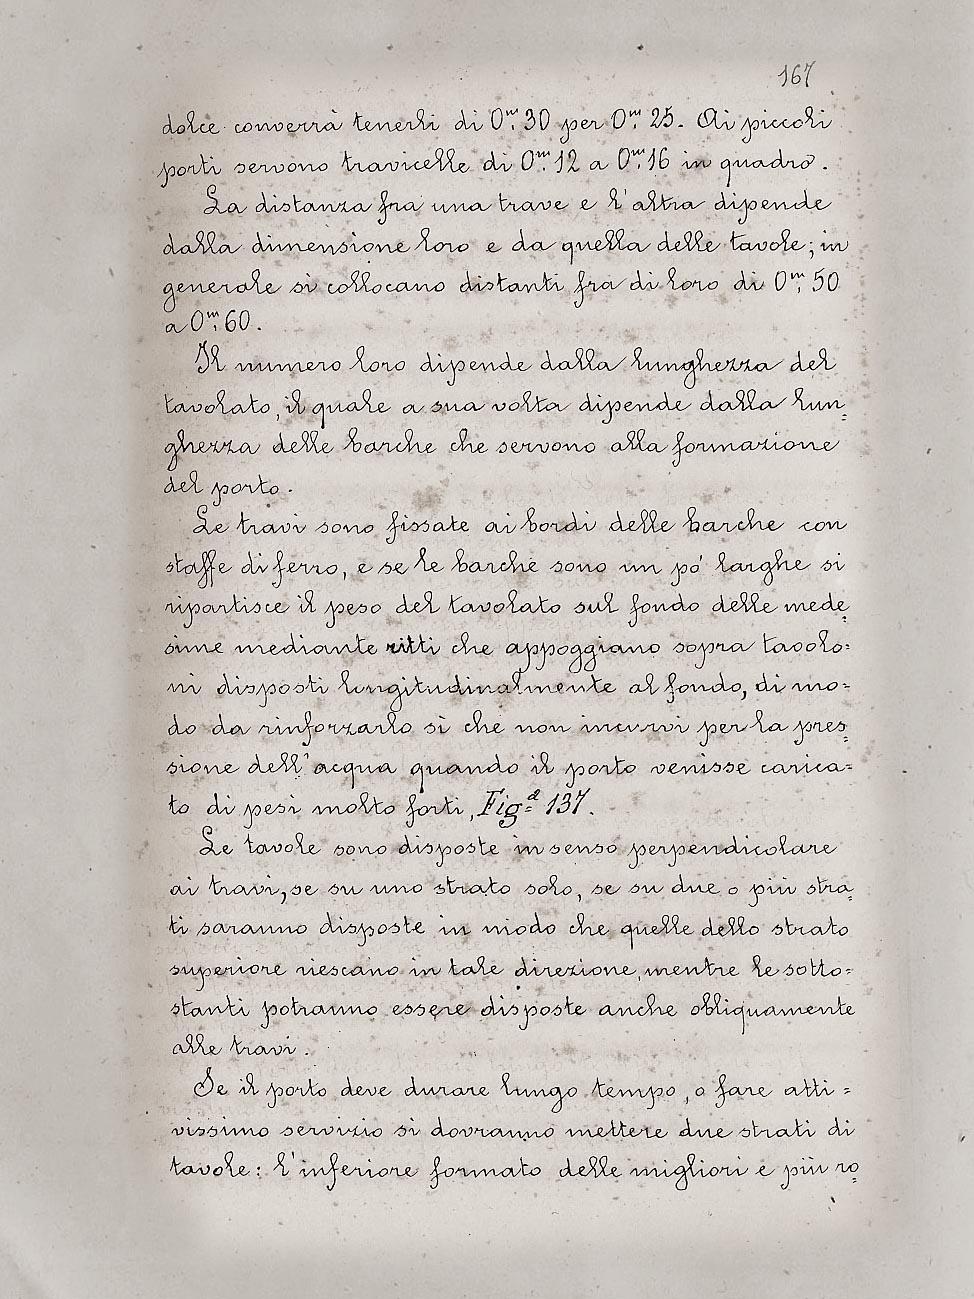 167
dolce converrà tenerli di 0.ᵐ30 per 0.ᵐ25. Ai piccoli
porti servono travicelle di 0.ᵐ12 a 0.ᵐ16 in quadro.
La distanza fra una trave e l'altra dipende
dalla dimensione loro e da quella delle tavole; in
generale si collocano distanti fra di loro di 0.ᵐ50
a 0.ᵐ60.
Il numero loro dipende dalla lunghezza del
tavolato, il quale a sua volta dipende dalla lun=
ghezza delle barche che servono alla formazione
del porto.
Le travi sono fissate ai bordi delle barche con
staffe di ferro, e se le barche sono un pò larghe si
ripartisce il peso del tavolato sul fondo delle mede=
sime mediante ritti che appoggiano sopra tavolo=
ni disposti longitudinalmente al fondo, di mo=
do da rinforzarlo sì che non incurvi per la pres=
sione dell'acqua quando il porto venisse carica=
to di pesi molto forti, Fig.ᵃ 137.
Le tavole sono disposte in senso perpendicolare
ai travi, se su uno strato solo, se su due o più stra=
ti saranno disposte in modo che quelle dello strato
superiore riescano in tale direzione, mentre le sotto=
stanti potranno essere disposte anche obliquamente
alle travi.
Se il porto deve durare lungo tempo, o fare atti=
vissimo servizio si dovranno mettere due strati di
tavole: l'inferiore formato delle migliori e più ro=